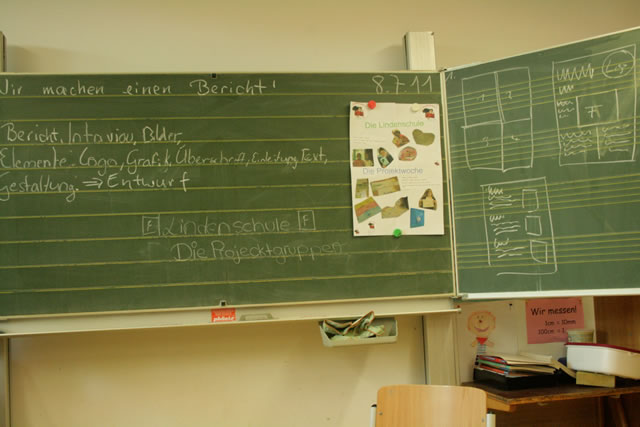 Wir machen einen Bericht!
8.7.11
Bericht, Interview, Bilder,
Elemente: Logo, Grafik, Überschrift, Einleitung, Text,
Gestaltung ⇒ Entwurf
E Lindenschule E
Die Projecktgruppen
Die Lindenschule
Die Projektwoche
1.
1 2
Logo
Wir messen!
1cm = 10mm
100cm = 1